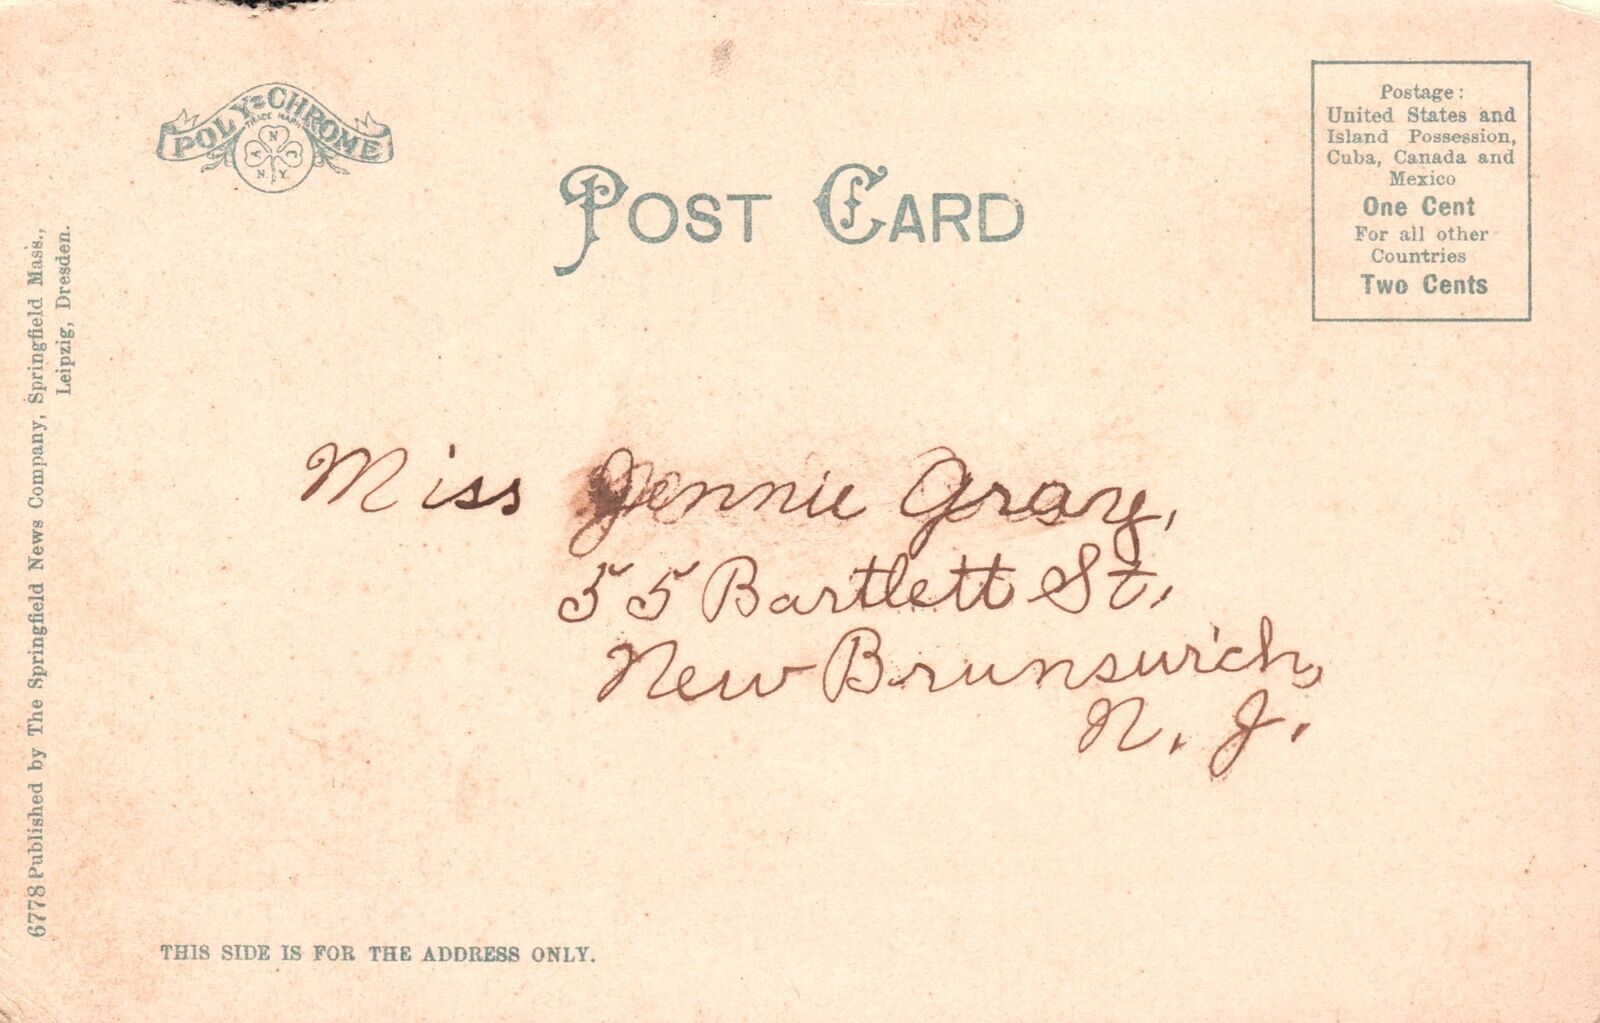 POLY-CHROME
TRADE MARK
A N C
N. Y.
POST CARD
Postage:
United States and
Island Possession,
Cuba, Canada and
Mexico
One Cent
For all other
Countries
Two Cents
6778 Published by The Springfield News Company, Springfield Mass.,
Leipzig, Dresden.
Miss Jennie Gray,
55 Bartlett St,
New Brunswick,
N. J.
THIS SIDE IS FOR THE ADDRESS ONLY.